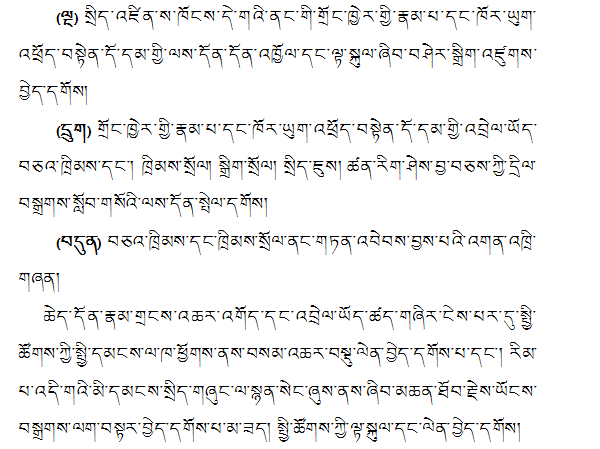 (ལྔ) སྲིད་འཛིན་ས་ཁོངས་དེ་གའི་ནང་གི་གྲོང་ཁྱེར་གྱི་རྣམ་པ་དང་ཁོར་ཡུག་
འཕྲོད་བསྟེན་དོ་དམ་གྱི་ལས་དོན་དོན་འཁྱོལ་དང་ལྟ་སྐུལ་ཞིབ་བཤེར་སྒྲིག་འཛུགས་
བྱེད་དགོས།
(དྲུག) གྲོང་ཁྱེར་གྱི་རྣམ་པ་དང་ཁོར་ཡུག་འཕྲོད་བསྟེན་དོ་དམ་གྱི་འབྲེལ་ཡོད་
བཅའ་ཁྲིམས་དང་། ཁྲིམས་སྲོལ། སྒྲིག་སྲོལ། སྲིད་ཇུས། ཚན་རིག་ཤེས་བྱ་བཅས་ཀྱི་དྲིལ་
བསྒྲགས་སློབ་གསོའི་ལས་དོན་སྤེལ་དགོས།
(བདུན) བཅའ་ཁྲིམས་དང་ཁྲིམས་སྲོལ་ནང་གཏན་འབེབས་བྱས་པའི་འགན་འཁྲི་
གཞན།
ཆེད་དོན་རྣམ་གྲངས་འཆར་འགོད་དང་འབྲེལ་ཡོད་ཚད་གཞིར་ངེས་པར་དུ་སྤྱི་
ཚོགས་ཀྱི་སྤྱི་དམངས་ལ་ཁ་ཕྱོགས་ནས་བསམ་འཆར་བསྡུ་ལེན་བྱེད་དགོས་པ་དང་། རིམ་
པ་འདི་གའི་མི་དམངས་སྲིད་གཞུང་ལ་སྙན་སེང་ཞུས་ནས་ཞིབ་མཆན་ཐོབ་རྗེས་ཡོངས་
བསྒྲགས་ལག་བསྟར་བྱེད་དགོས་པ་མ་ཟད། སྤྱི་ཚོགས་ཀྱི་ལྟ་སྐུལ་དང་ལེན་བྱེད་དགོས།